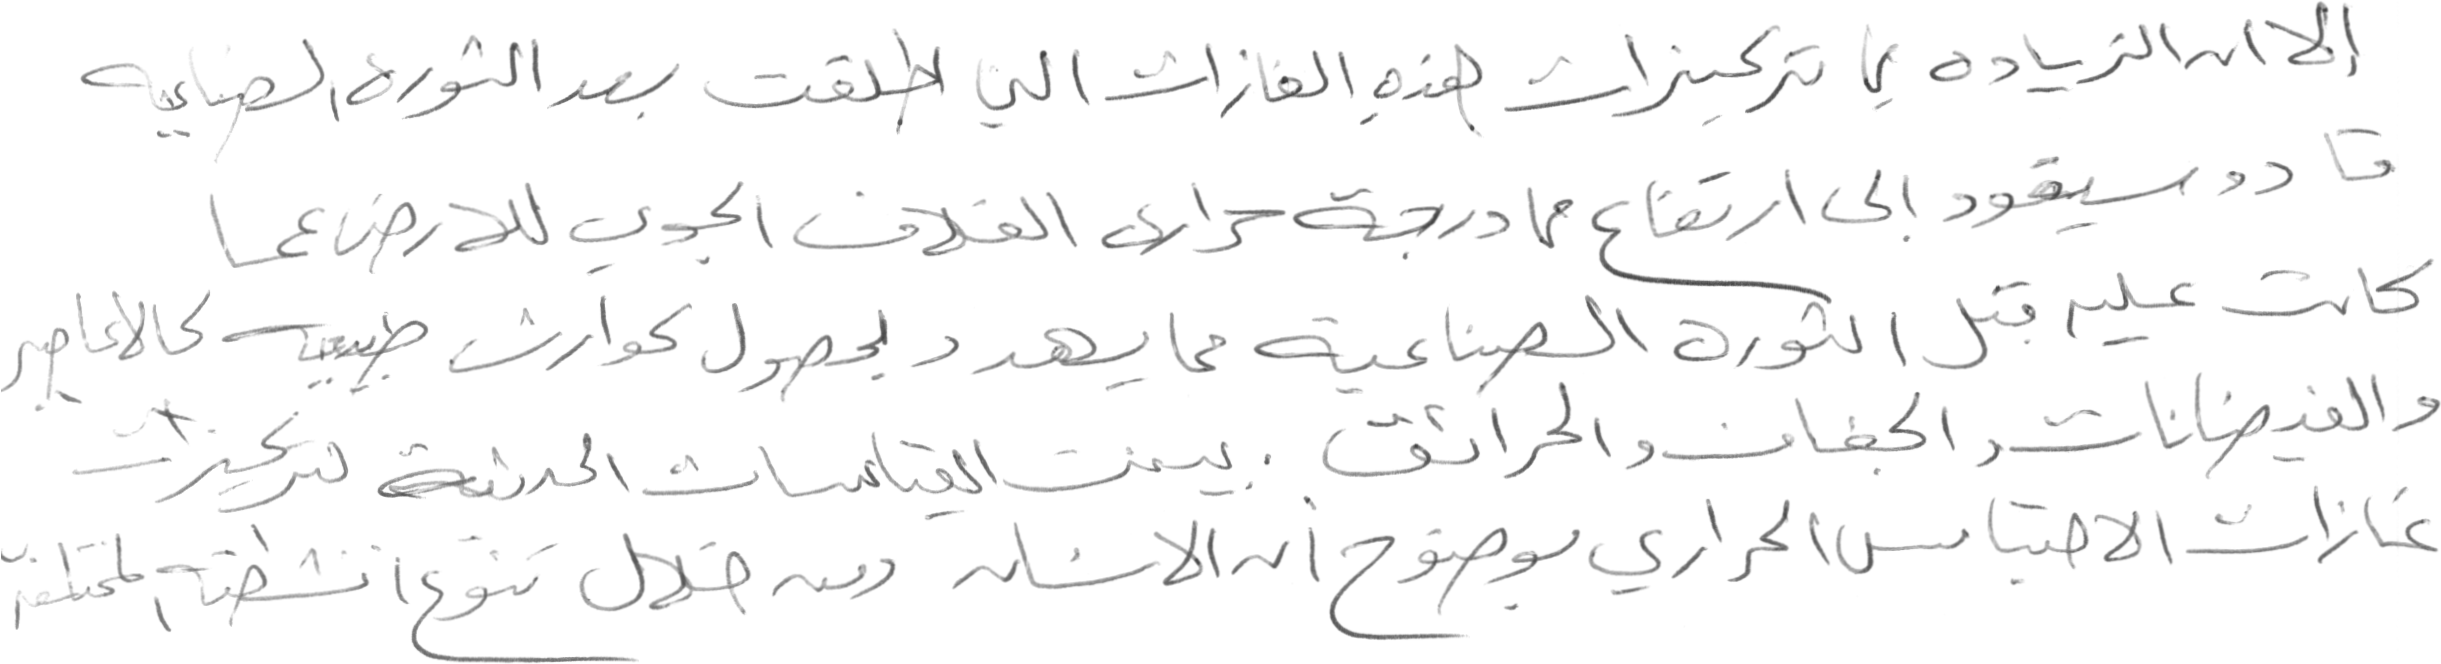 إلا ان الزياده في تركيزات هذه الغازات التي اطلقت بعد الثوره الصناعيه
قادو سيقود إلى ارتفاع في درجة حراره الغلاف الجوي للارض عما
كانت عليه قبل الثوره الصناعية مما يهدد بحصول كوارث طبيعيه كالاعاصير
والفيضانات والجفاف والحرائق . بينت القياسات الحديثة لتركيزات
غازات الاحتباس الحراري بوضوح أن الانسان ومن خلال تنوع انشطته المختلفة